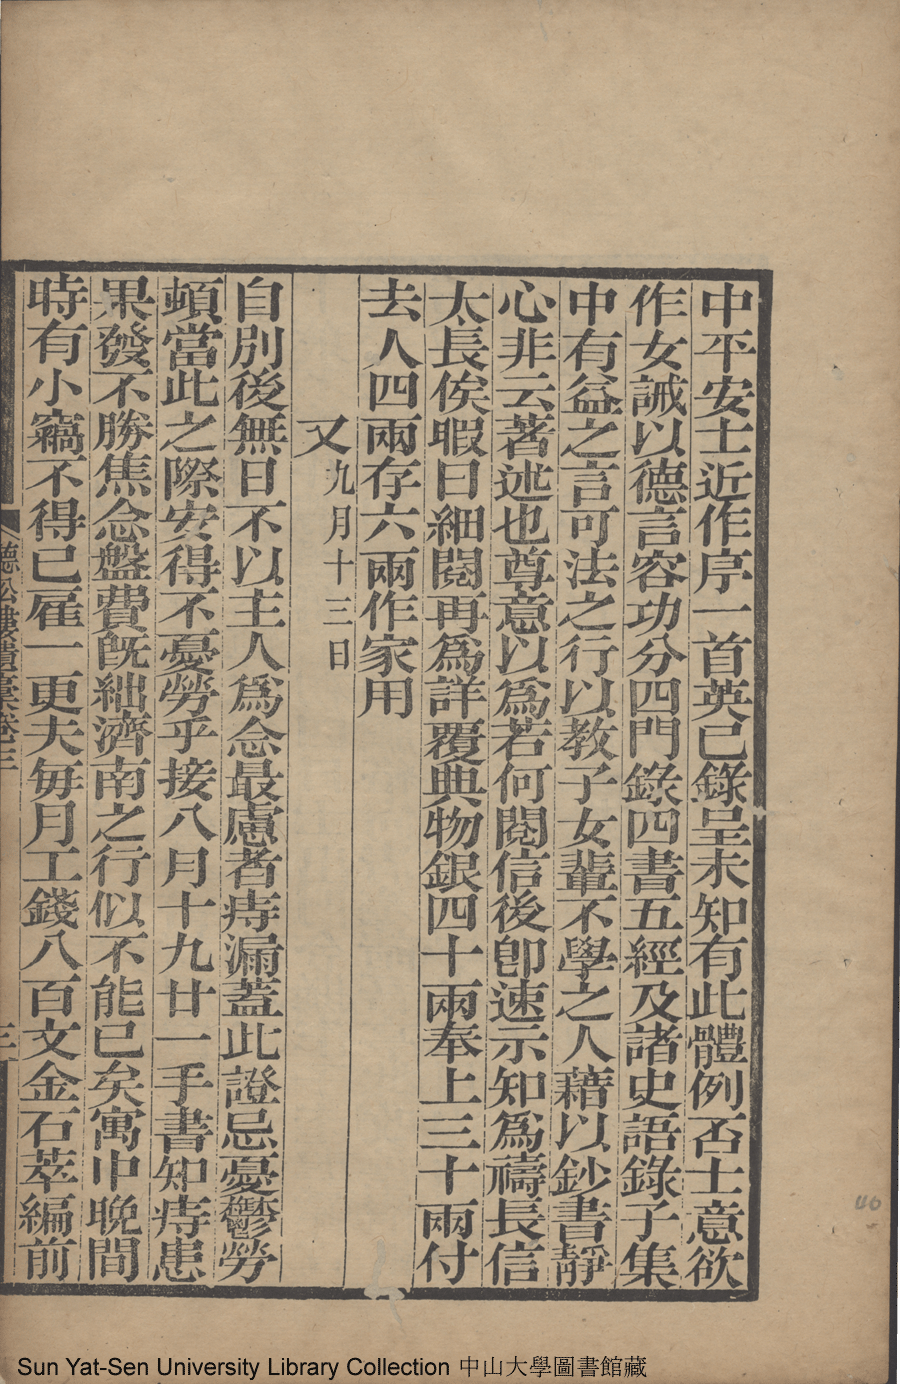 中平安士近作序一首英已錄呈未知有此體例否士意欲
作女誡以德言容功分四門錄四書五經及諸史語錄子集
中有益之言可法之行以教子女輩不學之人藉以鈔書靜
心非云著述也尊意以爲若何閱信後卽速示知爲禱長信
太長俟暇日細閱再爲詳覆典物銀四十兩奉上三十兩付
去人四兩存六兩作家用
又九月十三日
自別後無日不以主人爲念最慮者痔漏蓋此證忌憂鬱勞
頓當此之際安得不憂勞乎接八月十九廿一手書知痔患
果發不勝焦念盤費旣絀濟南之行似不能已矣寓中晚間
時有小竊不得已雇一更夫每月工錢八百文金石萃編前
卷三
三
40
Sun Yat-Sen University Library Collection 中山大學圖書館藏